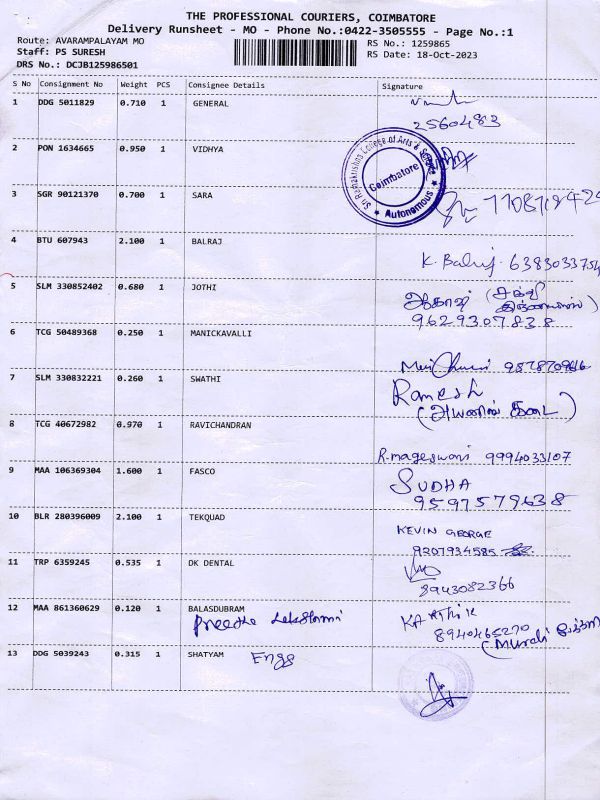 THE PROFESSIONAL COURIERS, COIMBATORE
Delivery Runsheet - MO - Phone No.:0422-3505555 - Page No.:1
Route: AVARAMPALAYAM MO
RS No.: 1259865
Staff: PS SURESH
RS Date: 18-Oct-2023
DRS No.: DCJB125986501
S No Consignment No Weight PCS Consignee Details Signature
1 DDG 5011829 0.710 1 GENERAL
2560483
2 PON 1634665 0.950 1 VIDHYA
Sri Ramakrishna College of Arts & Science
Coimbatore
Autonomous
3 SGR 90121370 0.700 1 SARA
4 BTU 607943 2.100 1 BALRAJ
K. Balraj. 6383033754
5 SLM 330852402 0.680 1 JOTHI
9629307838
6 TCG 50489368 0.250 1 MANICKAVALLI
7 SLM 330832221 0.260 1 SWATHI
Ramesh
8 TCG 40672982 0.970 1 RAVICHANDRAN
R.mageswari 9994033107
9 MAA 106369304 1.600 1 FASCO
SUDHA
9597579638
10 BLR 280396009 2.100 1 TEKQUAD
KEVIN GEORGE
9207934585
11 TRP 6359245 0.535 1 DK DENTAL
8943082366
12 MAA 861360629 0.120 1 BALASDUBRAM
Preetha Lakshmi
KARTHIK
8940465270
(Murali
13 DDG 5039243 0.315 1 SHATYAM Engg